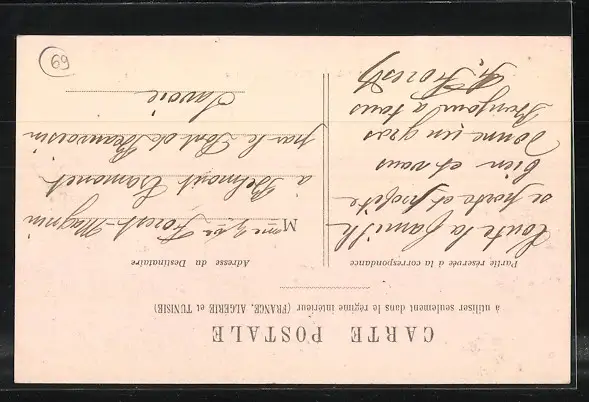 CARTE POSTALE
à utiliser seulement dans le régime intérieur (FRANCE, ALGERIE et TUNISIE)
Partie réservée à la correspondance
Toute la famille
se porte et profite
bien et vous
donne un gros
Bonjour a tous
Forest
Adresse du Destinataire
Mme Vve Forest Magnin
à Belmont Tramonet
par le Pont de Beauvoisin
Savoie
69